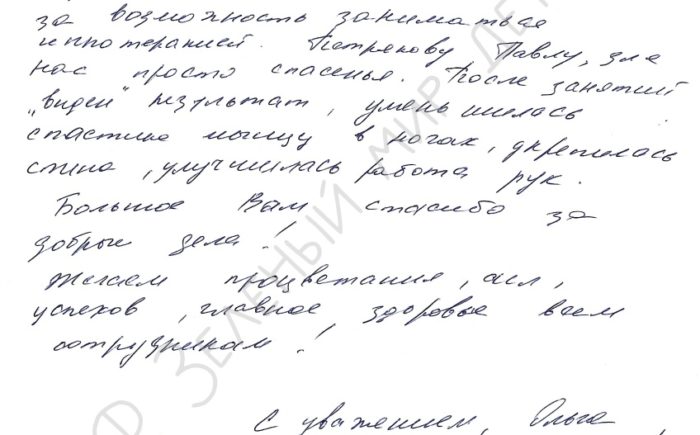 за возможность заниматься
иппотерапией. Петрякову Павлу, для
нас просто спасенье. После занятий
„виден" результат, уменьшилась
спастика мышц в ногах, укрепилась
спина, улучшилась работа рук.
Большое Вам спасибо за
добрые дела!
Желаем процветания, сил,
успехов, главное здоровье всем
сотрудникам!
С уважением, Ольга
ЗЕЛЕНЫЙ МИР ДЕТ